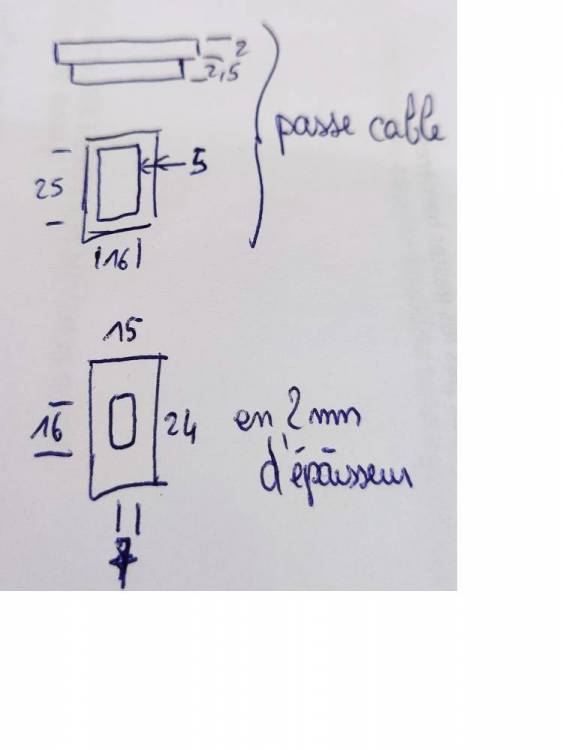 2
2,5
passe cable
5
25
16
15
16
24
en 2 mm
d'épaisseur
7